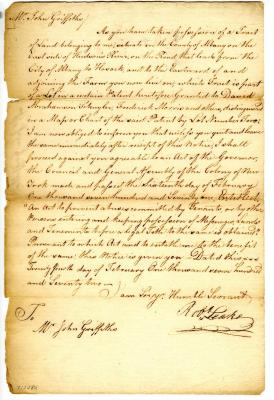 Mr. John Griffiths
As you have taken possession of a Tract
of Land belonging to me, situate in the County of Albany on the
east side of Hudsons River, on the Road that leads from the
City of Albany to and to the Eastward of and
adjoining the Farm you now live on; which Tract is part
of a Lot in a certain Patent heretofore granted to David
Abrahamson Schuyler, Frederick Morris and others, distinguished
in a Map or Chart of the said Patent by Lot Number
I am now obliged to inform you that unless you quit and leave
the same immediately after receipt of this Notice, I shall
proceed against you agreeable to an Act of the Governor,
the Council and General Assembly of the Colony of New
York made and passed the Sixteenth day of February
One thousand seven hundred and Seventy one, Entitled
"An Act to prevent abuses committed by Tenants or other
Persons entering and keeping possession of Messuages Lands
and Tenements for a legal Title to the same is obtained."
Pursuant to which Act and to entitle me to the benefit
of the same this Notice is given you Dated this
Twenty fourth day of February One thousand seven hundred
and Seventy two
am Sir your Humble Servant
Robt Leake
To
Mr John Griffiths